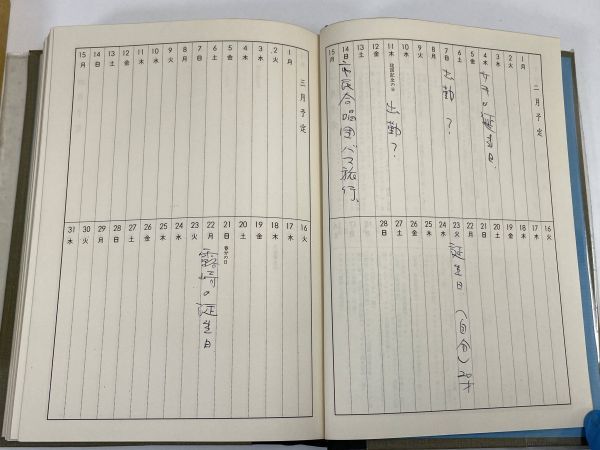 二月予定
1 月
2 火
3 水
4 木 サチの誕生日.
5 金
6 土
7 日 出勤?
8 月
9 火
10 水
11 木 建国記念の日 出勤?
12 金
13 土
14 日 市民合唱団バス旅行.
15 月
16 火
17 水
18 木
19 金
20 土
21 日
22 月
23 火 誕生日 (自分) 20才
24 水
25 木
26 金
27 土
28 日
三月予定
1 月
2 火
3 水
4 木
5 金
6 土
7 日
8 月
9 火
10 水
11 木
12 金
13 土
14 日
15 月
16 火
17 水
18 木
19 金
20 土
21 日 春分の日
22 月 露崎の誕生日
23 火
24 水
25 木
26 金
27 土
28 日
29 月
30 火
31 水